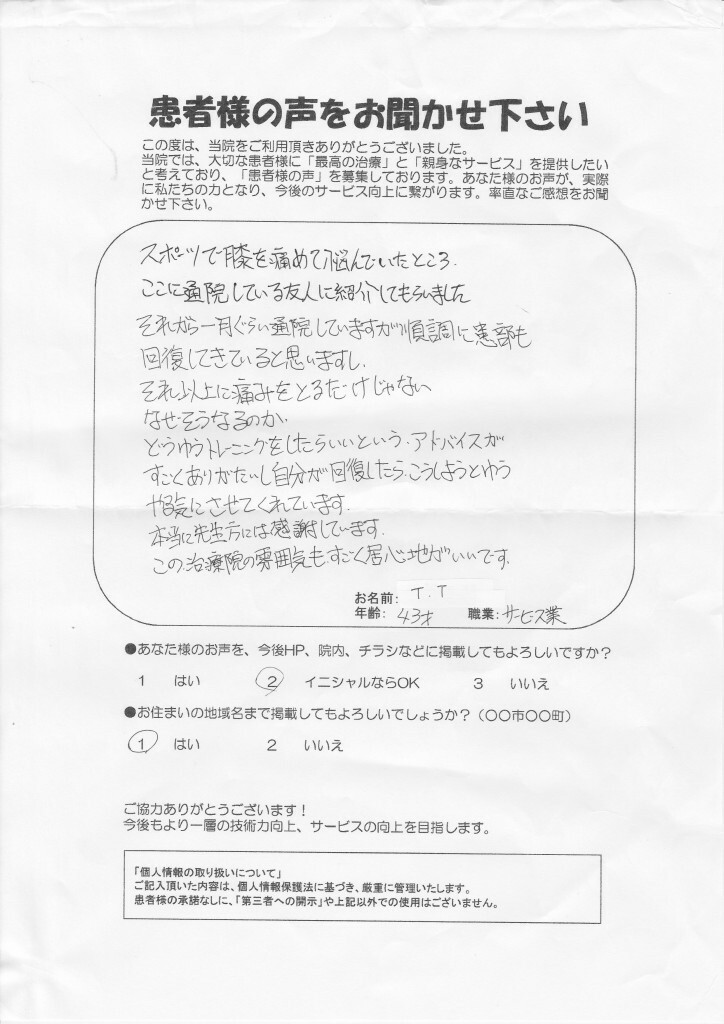 患者様の声をお聞かせ下さい
この度は、当院をご利用頂きありがとうございました。
当院では、大切な患者様に「最高の治療」と「親身なサービス」を提供したい
と考えており、「患者様の声」を募集しております。あなた様のお声が、実際
に私たちの力となり、今後のサービス向上に繋がります。率直なご感想をお聞
かせ下さい。
スポーツで膝を痛めて悩んでいたところ.
ここに通院している友人に紹介してもらいました
それから一月ぐらい通院していますが順調に患部も
回復してきていると思いますし.
それ以上に痛みをとるだけじゃない
なぜそうなるのか.
どうゆうトレーニングをしたらいいという.アドバイスが
すごくありがたいし自分が回復したら.こうしようとゆう
やる気にさせてくれています.
本当に先生方には感謝しています.
この治療院の雰囲気も.すごく居心地がいいです.
お名前: T.T
年齢: 43才 職業: サービス業
●あなた様のお声を、今後HP、院内、チラシなどに掲載してもよろしいですか？
1 はい 2 イニシャルならOK 3 いいえ
●お住まいの地域名まで掲載してもよろしいでしょうか？（〇〇市〇〇町）
1 はい 2 いいえ
ご協力ありがとうございます！
今後もより一層の技術力向上、サービスの向上を目指します。
「個人情報の取り扱いについて」
ご記入頂いた内容は、個人情報保護法に基づき、厳重に管理いたします。
患者様の承諾なしに、「第三者への開示」や上記以外での使用はございません。